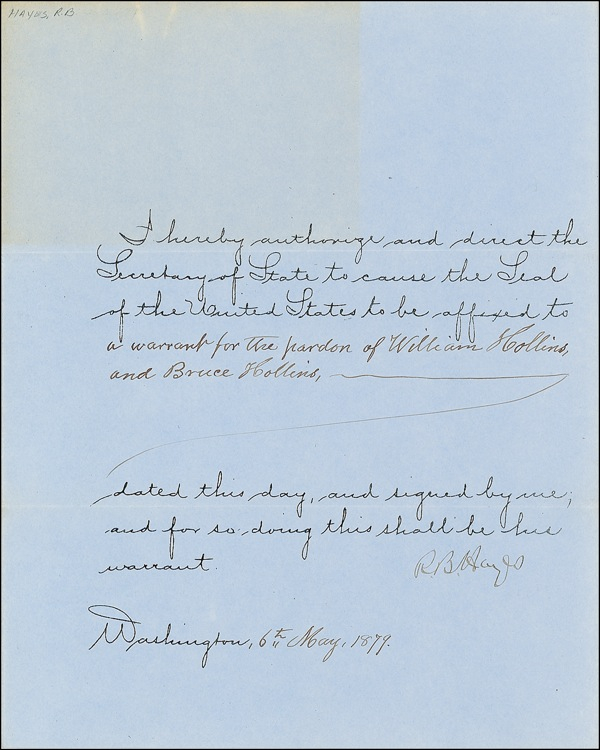 HAYES, R.B.
I hereby authorize and direct the
Secretary of State to cause the Seal
of the United States to be affixed to
a warrant for the pardon of William Hollins,
and Bruce Hollins,
dated this day, and signed by me;
and for so doing this shall be his
warrant.
R.B. Hayes
Washington, 6th May, 1879.